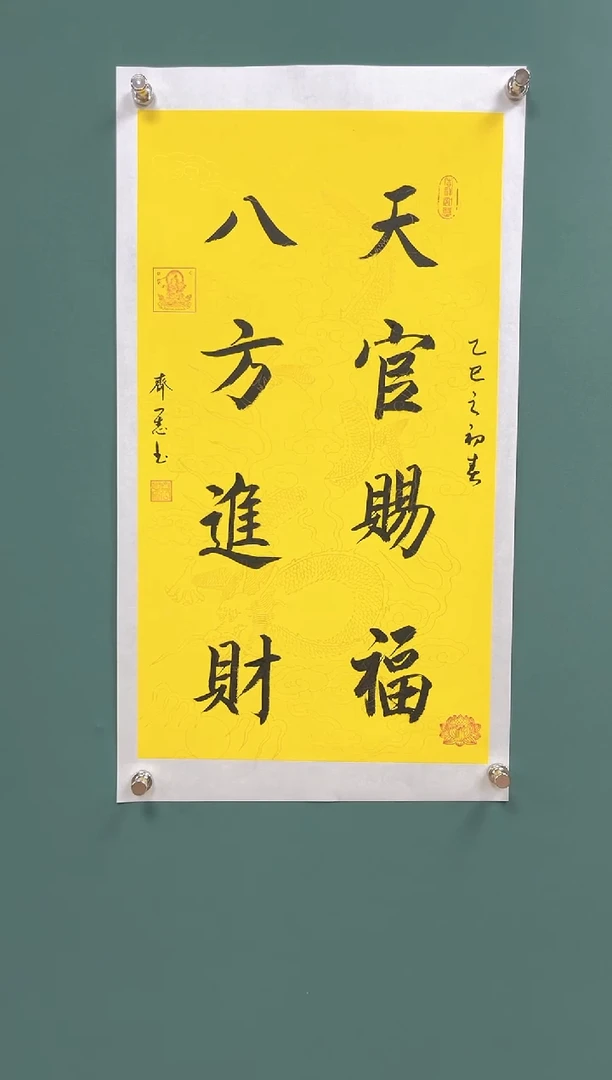 乙巳之初春
天官賜福
八方進財
齊